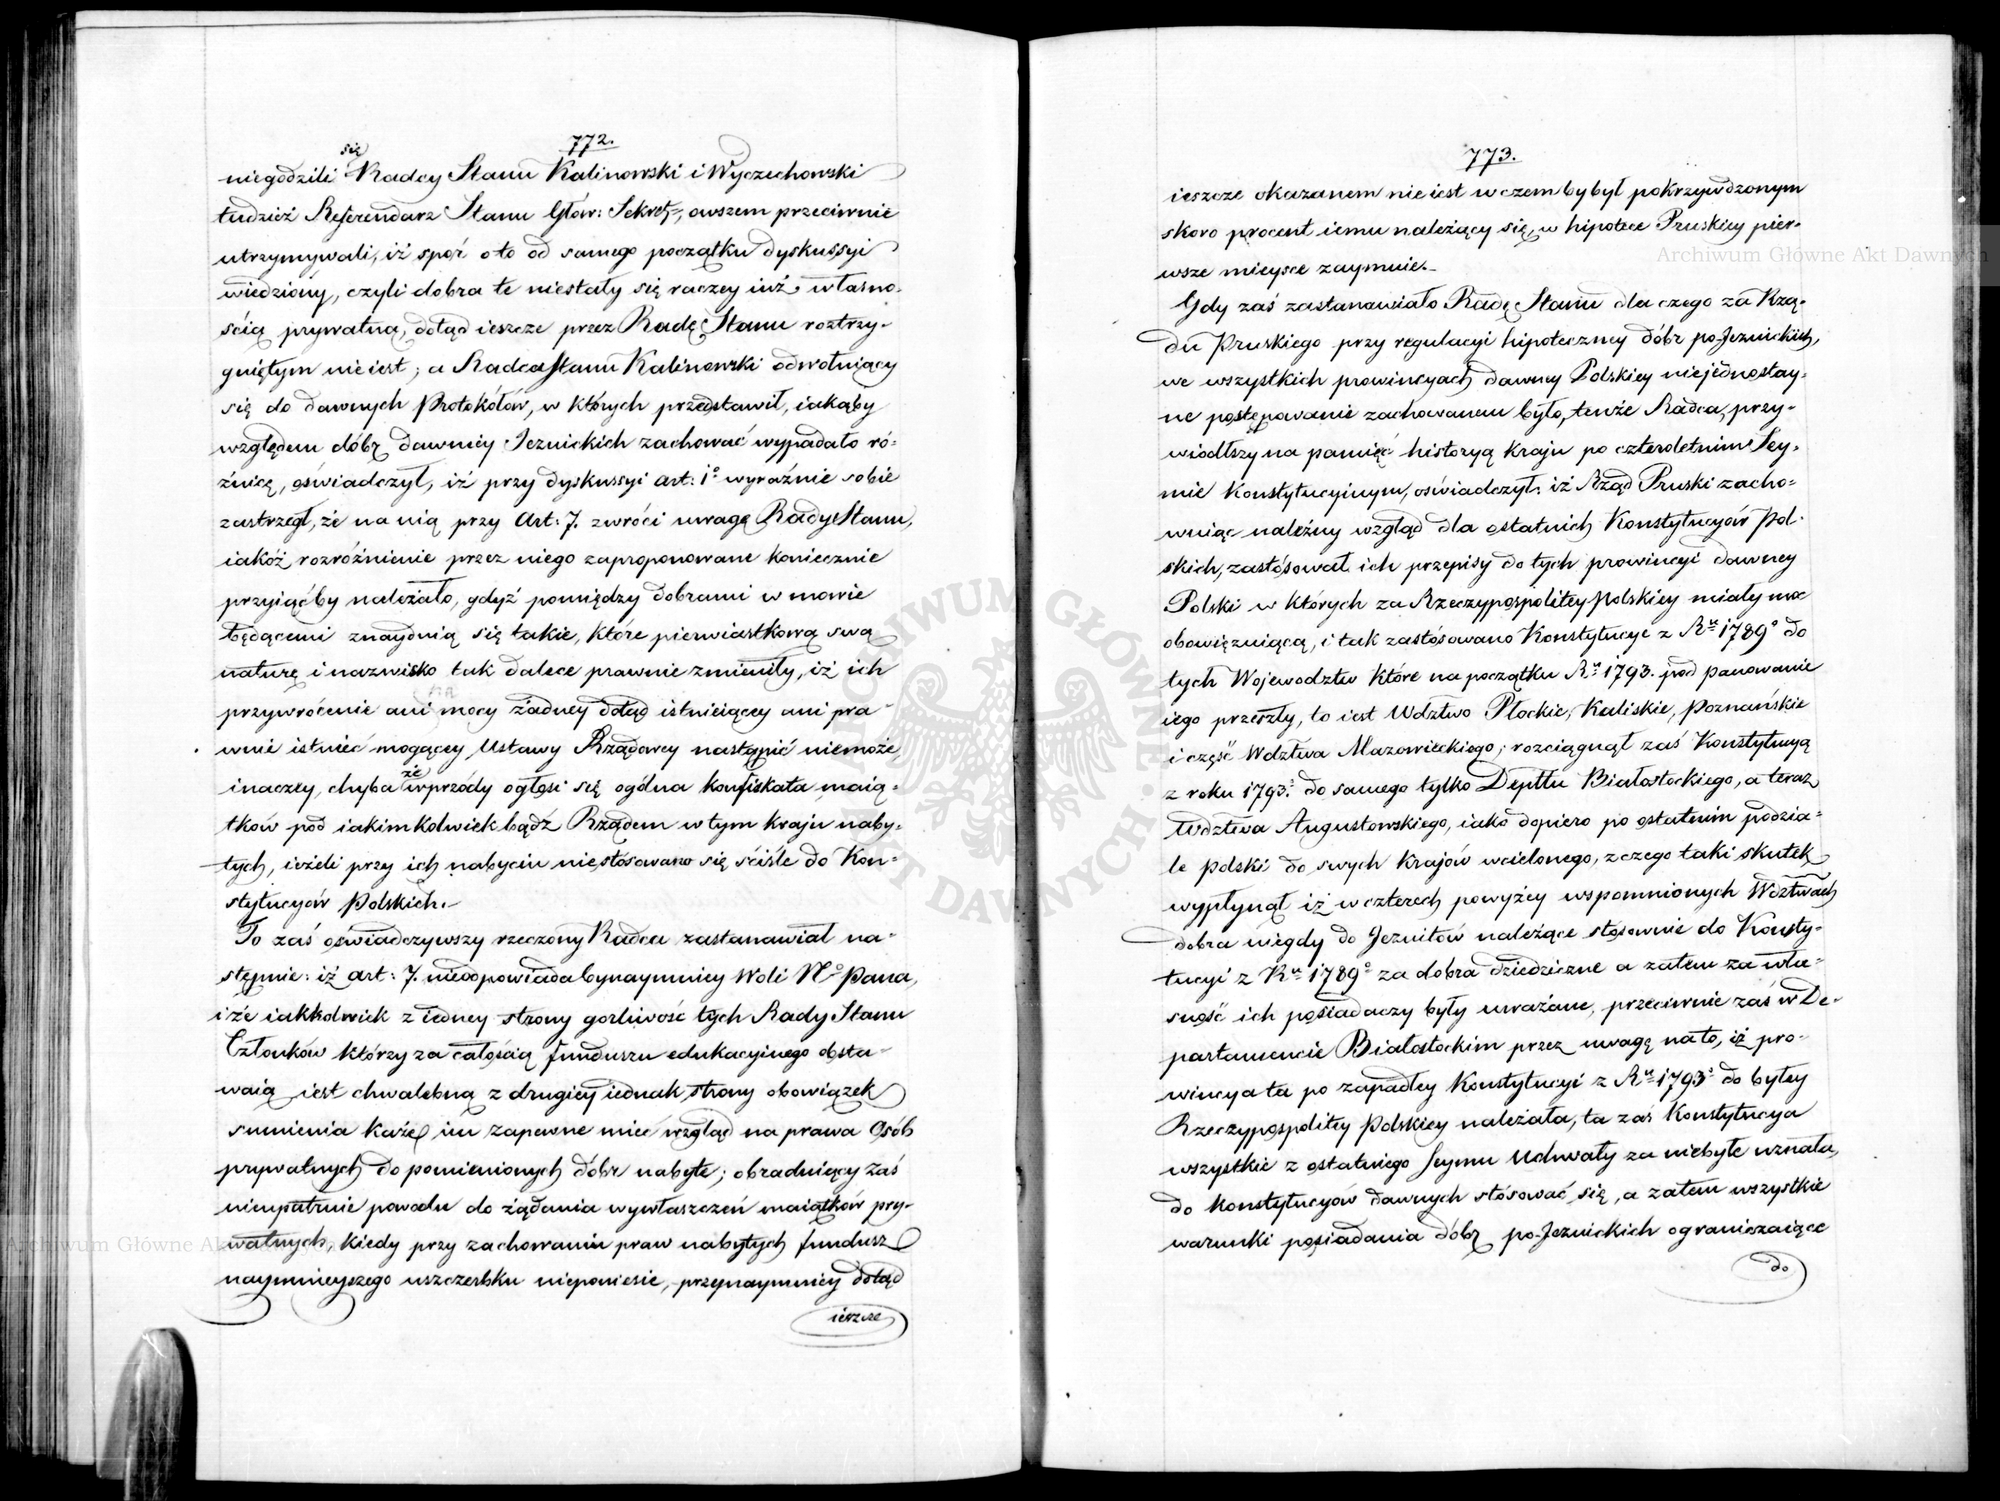 772.
niegodzili się Radcy Stanu Kalinowski i Wyczechowski
tudzież Referendarz Stanu Głów: Sekret:, owszem przeciwnie
utrzymywali, iż spór o to od samego początku dyskussyi
wiedziony, czyli dobra te niestały się raczey iuż własno-
ścią prywatną, dotąd ieszcze przez Radę Stanu roztrzy-
gniętym nie iest; a Radca Stanu Kalinowski odwołuiący
się do dawnych Protokółów, w których przedstawił, iakąby
względem dóbr dawniey Jezuickich zachować wypadało ró-
żnicę, oświadczył, iż przy dyskussyi art: 1º wyraźnie sobie
zastrzegł, że na nią przy Art: 7. zwróci uwagę Rady Stanu,
iakóż rozróżnienie przez niego zaproponowane koniecznie
przyiąćby należało, gdyż pomiędzy dobrami w mowie
będącemi znayduią się takie, które pierwiastkową swą
naturę i nazwisko tak dalece prawnie zmieniły, iż ich
przywrócenie ani na mocy żadney dotąd istnieiącey ani pra-
wnie istnieć mogącey Ustawy Rządowey nastąpić niemoże,
inaczey, chyba że wprzódy ogłosi się ogólna konfiskata maią-
tków pod iakimkolwiek bądź Rządem w tym kraiu naby-
tych, ieżeli przy ich nabyciu niestosowano się ściśle do Kon-
stytucyów Polskich.
To zaś oświadczywszy rzeczony Radca zastanawiał na-
stępnie: iż art: 7. nieodpowiada bynaymniey Woli Nº Pana,
i że iakkolwiek z iedney strony gorliwość tych Rady Stanu
Członków którzy za całością funduszu edukacyinego obsta-
waią iest chwalebną z drugiey iednak strony obowiązek
sumienia każe im zapewne mieć wzgląd na prawa Osób
prywatnych do pomienionych dóbr nabyte; obraduiący zaś
nieupatruie powodu do żądania wywłaszczeń maiątków pry-
watnych, kiedy przy zachowaniu praw nabytych fundusz
naymnieyszego uszczerbku nieponiesie, przynaymniey dotąd
ieszcze
773.
ieszcze okazanem nie iest w czem by był pokrzywdzonym
skoro procent iemu należący się, w hipotece Pruskiey pier-
wsze mieysce zaymuie.
Gdy zaś zastanawiało Radę Stanu dla czego za Rzą-
du Pruskiego przy regulacyi hipoteczney dóbr po-Jezuickich,
we wszystkich prowincyach dawney Polskiey niejednostay-
ne postępowanie zachowanem było, tenże Radca, przy-
wiodłszy na pamięć historyą kraiu po czteroletnim Sey-
mie Konstytucyinym, oświadczył: iż Rząd Pruski zacho-
wuiąc należny wzgląd dla ostatnich Konstytucyów Pol-
skich, zastósował ich przepisy do tych prowincyi dawney
Polski w których za Rzeczypospolitey Polskiey miały moc
obowięzuiącą, i tak zastósowano Konstytucye z Ru 1789º do
tych Wojewodztw które na początku Ru 1793. pod panowanie
iego przeszły, to iest Wdztwo Płockie, Kaliskie, Poznańskie
i część Wdztwa Mazowieckiego; rozciągnął zaś Konstytucyą
z roku 1793º do samego tylko Depttu Białostockiego, a teraz
Wdztwa Augustowskiego, iako dopiero po ostatnim podzia-
le Polski do swych kraiów wcielonego, z czego taki skutek
wypłynął iż w czterech powyżey wspomnionych Wdztwach
dobra niegdy do Jezuitów należące stosownie do Konsty-
tucyi z Ru 1789º za dobra dziedziczne a zatem za wła-
sność ich posiadaczy były uważane, przeciwnie zaś w De-
partamencie Białostockim przez uwagę na to, iż pro-
wincya ta po zapadłey Konstytucyi z Ru 1793º do byłey
Rzeczypospolitey Polskiey należała, ta zaś Konstytucya
wszystkie z ostatniego Seymu Uchwały za niebyłe uznała,
do Konstytucyów dawnych stósować się, a zatem wszystkie
warunki posiadania dóbr po-Jezuickich ograniczaiące
do
Archiwum Główne Akt Dawnych
Archiwum Główne Akt Dawnych
ARCHIWUM GŁÓWNE AKT DAWNYCH